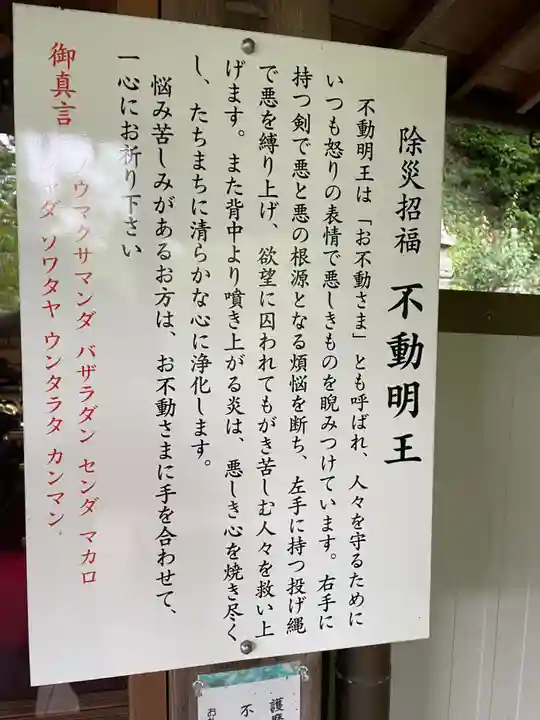 除災招福 不動明王
不動明王は「お不動さま」とも呼ばれ、人々を守るために
いつも怒りの表情で悪しきものを睨みつけています。右手に
持つ剣で悪と悪の根源となる煩悩を断ち、左手に持つ投げ縄
で悪を縛り上げ、欲望に囚われてもがき苦しむ人々を救い上
げます。また背中より噴き上がる炎は、悪しき心を焼き尽く
し、たちまちに清らかな心に浄化します。
悩み苦しみがあるお方は、お不動さまに手を合わせて、
一心にお祈り下さい
御真言 ウマクサマンダ バザラダン センダ マカロ
ャダ ソワタヤ ウンタラタ カンマン
護摩
不